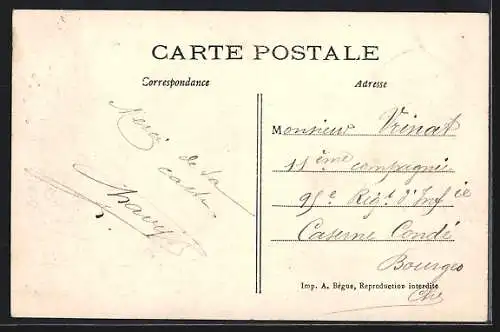 CARTE POSTALE
Correspondance
Adresse
Merci
de ta
carte
Monsieur Vrinat
11ème compagnie
95e Régt d'Infie
Caserne Condé
Bourges
Cher
Imp. A. Bègue, Reproduction interdite